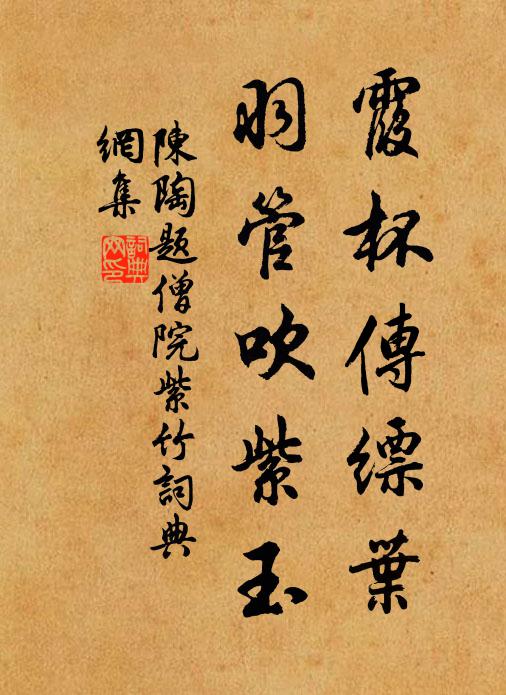 霞杯傳縹葉
羽管吹紫玉
陳陶題僧院紫竹詞典
網集
詞典
网印